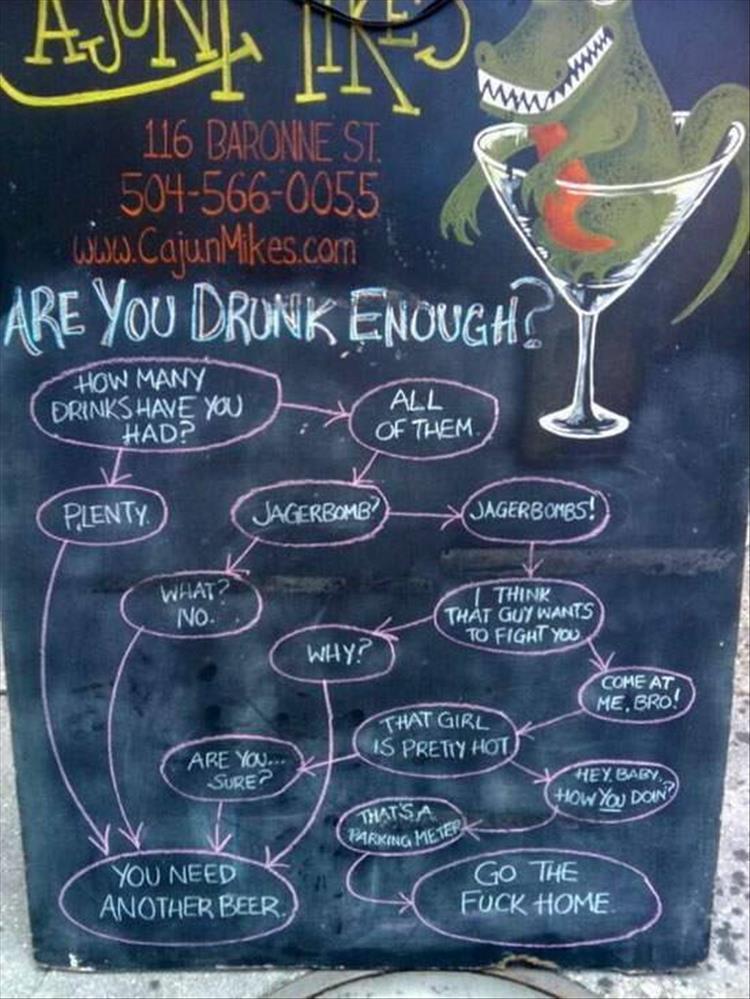 AJUN MIKE'S
116 BARONNE ST.
504-566-0055
www.CajunMikes.com
ARE YOU DRUNK ENOUGH?
HOW MANY
DRINKS HAVE YOU
HAD?
ALL
OF THEM.
PLENTY.
JAGERBOMB?
JAGERBOMBS!
WHAT?
NO.
I THINK
THAT GUY WANTS
TO FIGHT YOU
WHY?
COME AT
ME, BRO!
THAT GIRL
IS PRETTY HOT
ARE YOU...
SURE?
HEY, BABY,
HOW YOU DOIN?
THAT'S A
PARKING METER
YOU NEED
ANOTHER BEER.
GO THE
FUCK HOME.